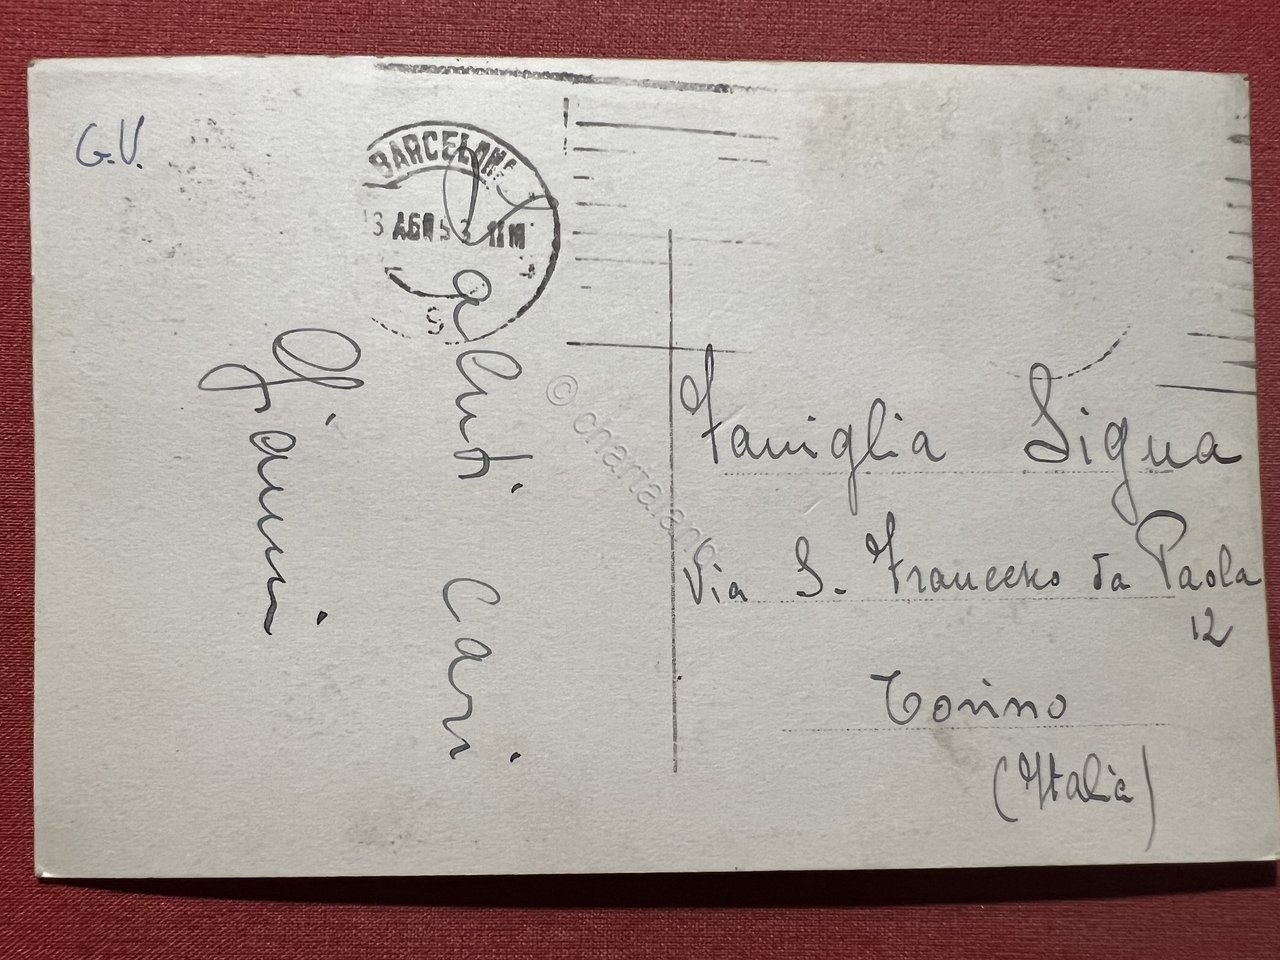 G.V.
BARCELONA
3 AGO 53 11M
Saluti cari
Gianni
Famiglia Sigua
Via S. Francesco da Paola
12
Torino
(Italia)
© charta